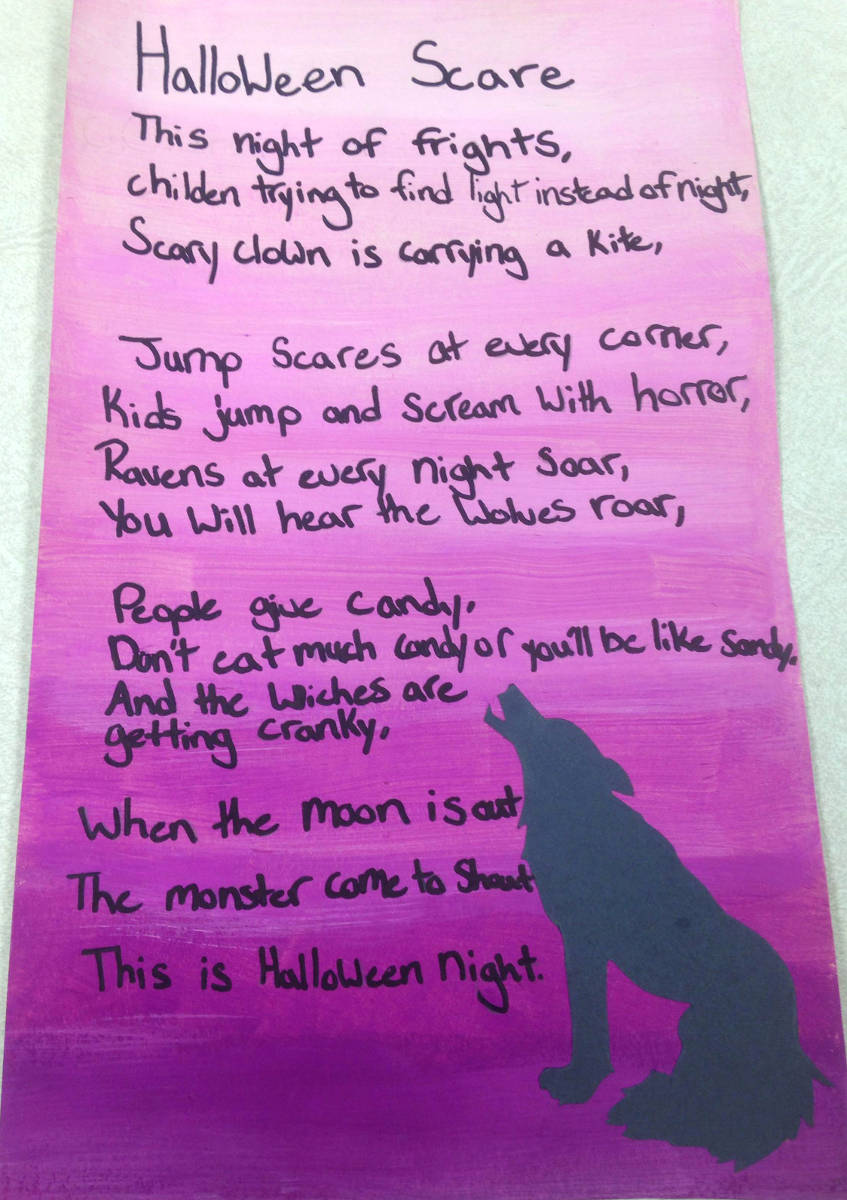 Halloween Scare
This night of frights,
childen trying to find light instead of night,
Scary clown is carrying a kite,
Jump scares at every corner,
Kids jump and scream with horror,
Ravens at every night soar,
You will hear the wolves roar,
People give candy.
Don't eat much candy or you'll be like sandy.
And the wiches are
getting cranky.
When the moon is out
The monster come to shout
This is Halloween night.